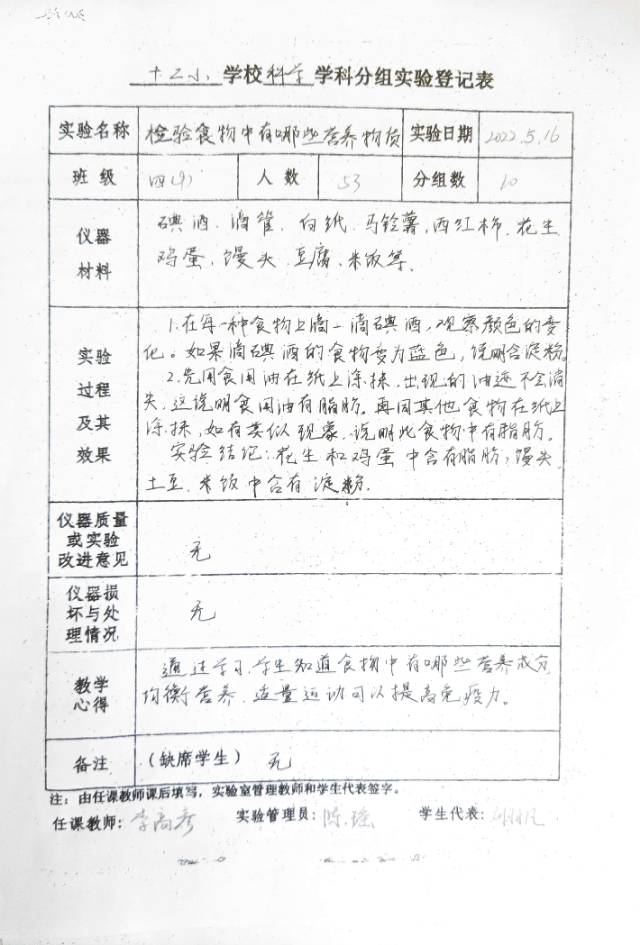 十二小 学校 科学 学科分组实验登记表
实验名称 检验食物中有哪些营养物质 实验日期 2022.5.16
班 级 四(4) 人 数 53 分组数 10
仪器材料
碘酒、滴管、白纸、马铃薯、西红柿、花生
鸡蛋、馒头、豆腐、米饭等。
实验过程及其效果
1.在每一种食物上滴一滴碘酒,观察颜色的变
化。如果滴碘酒的食物变为蓝色,说明含淀粉
2.先用食用油在纸上涂抹,出现的油迹不会消
失,这说明食用油有脂肪。再用其他食物在纸上
涂抹,如有类似现象,说明此食物中有脂肪。
实验结论:花生和鸡蛋中含有脂肪,馒头、
土豆、米饭中含有淀粉.
仪器质量或实验改进意见 无
仪器损坏与处理情况 无
教学心得
通过学习,学生知道食物中有哪些营养成分
均衡营养、适量运动可以提高免疫力。
备注 (缺席学生) 无
注:由任课教师课后填写,实验室管理教师和学生代表签字。
任课教师: 实验管理员:陈瑶 学生代表: